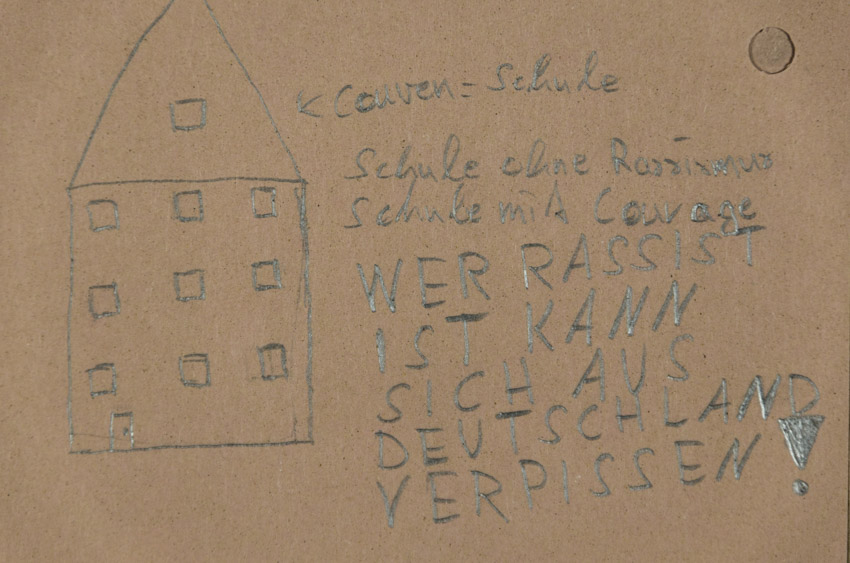 < Couven=Schule
Schule ohne Rassismus
Schule mit Courage
WER RASSIST
IST KANN
SICH AUS
DEUTSCHLAND
VERPISSEN!